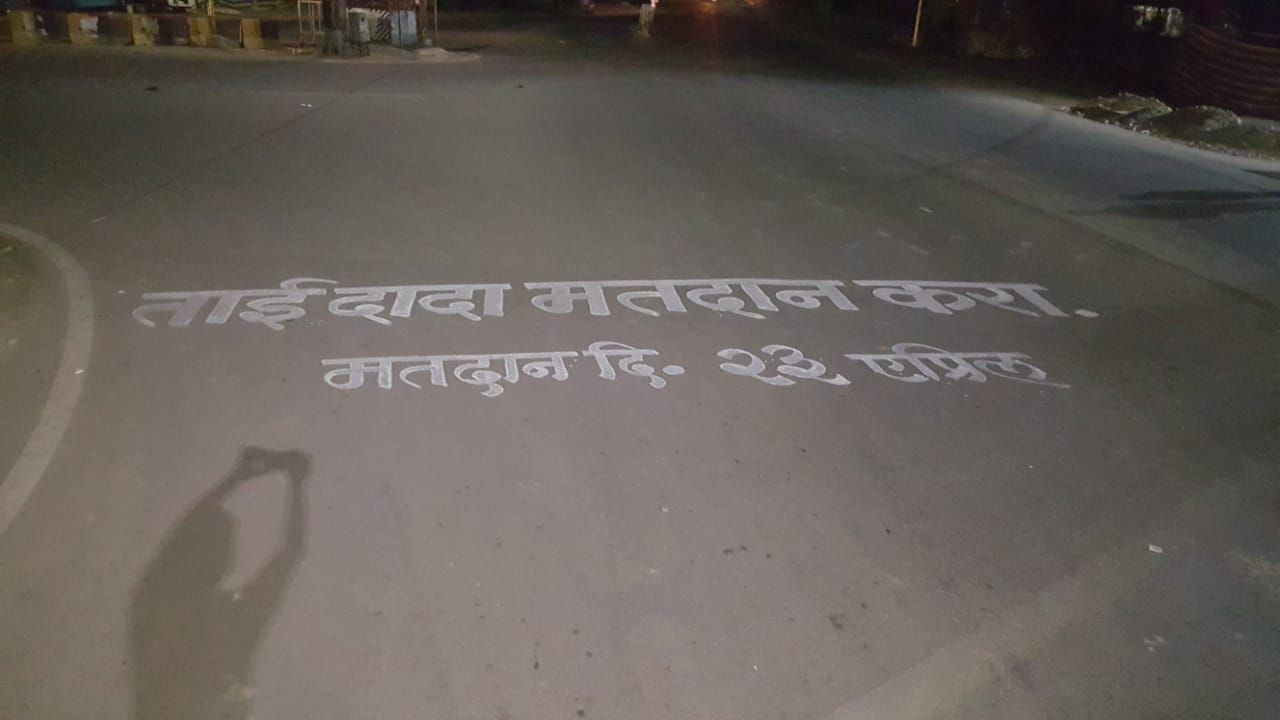 ताई दादा मतदान करा.
मतदान दि. २३ एप्रिल